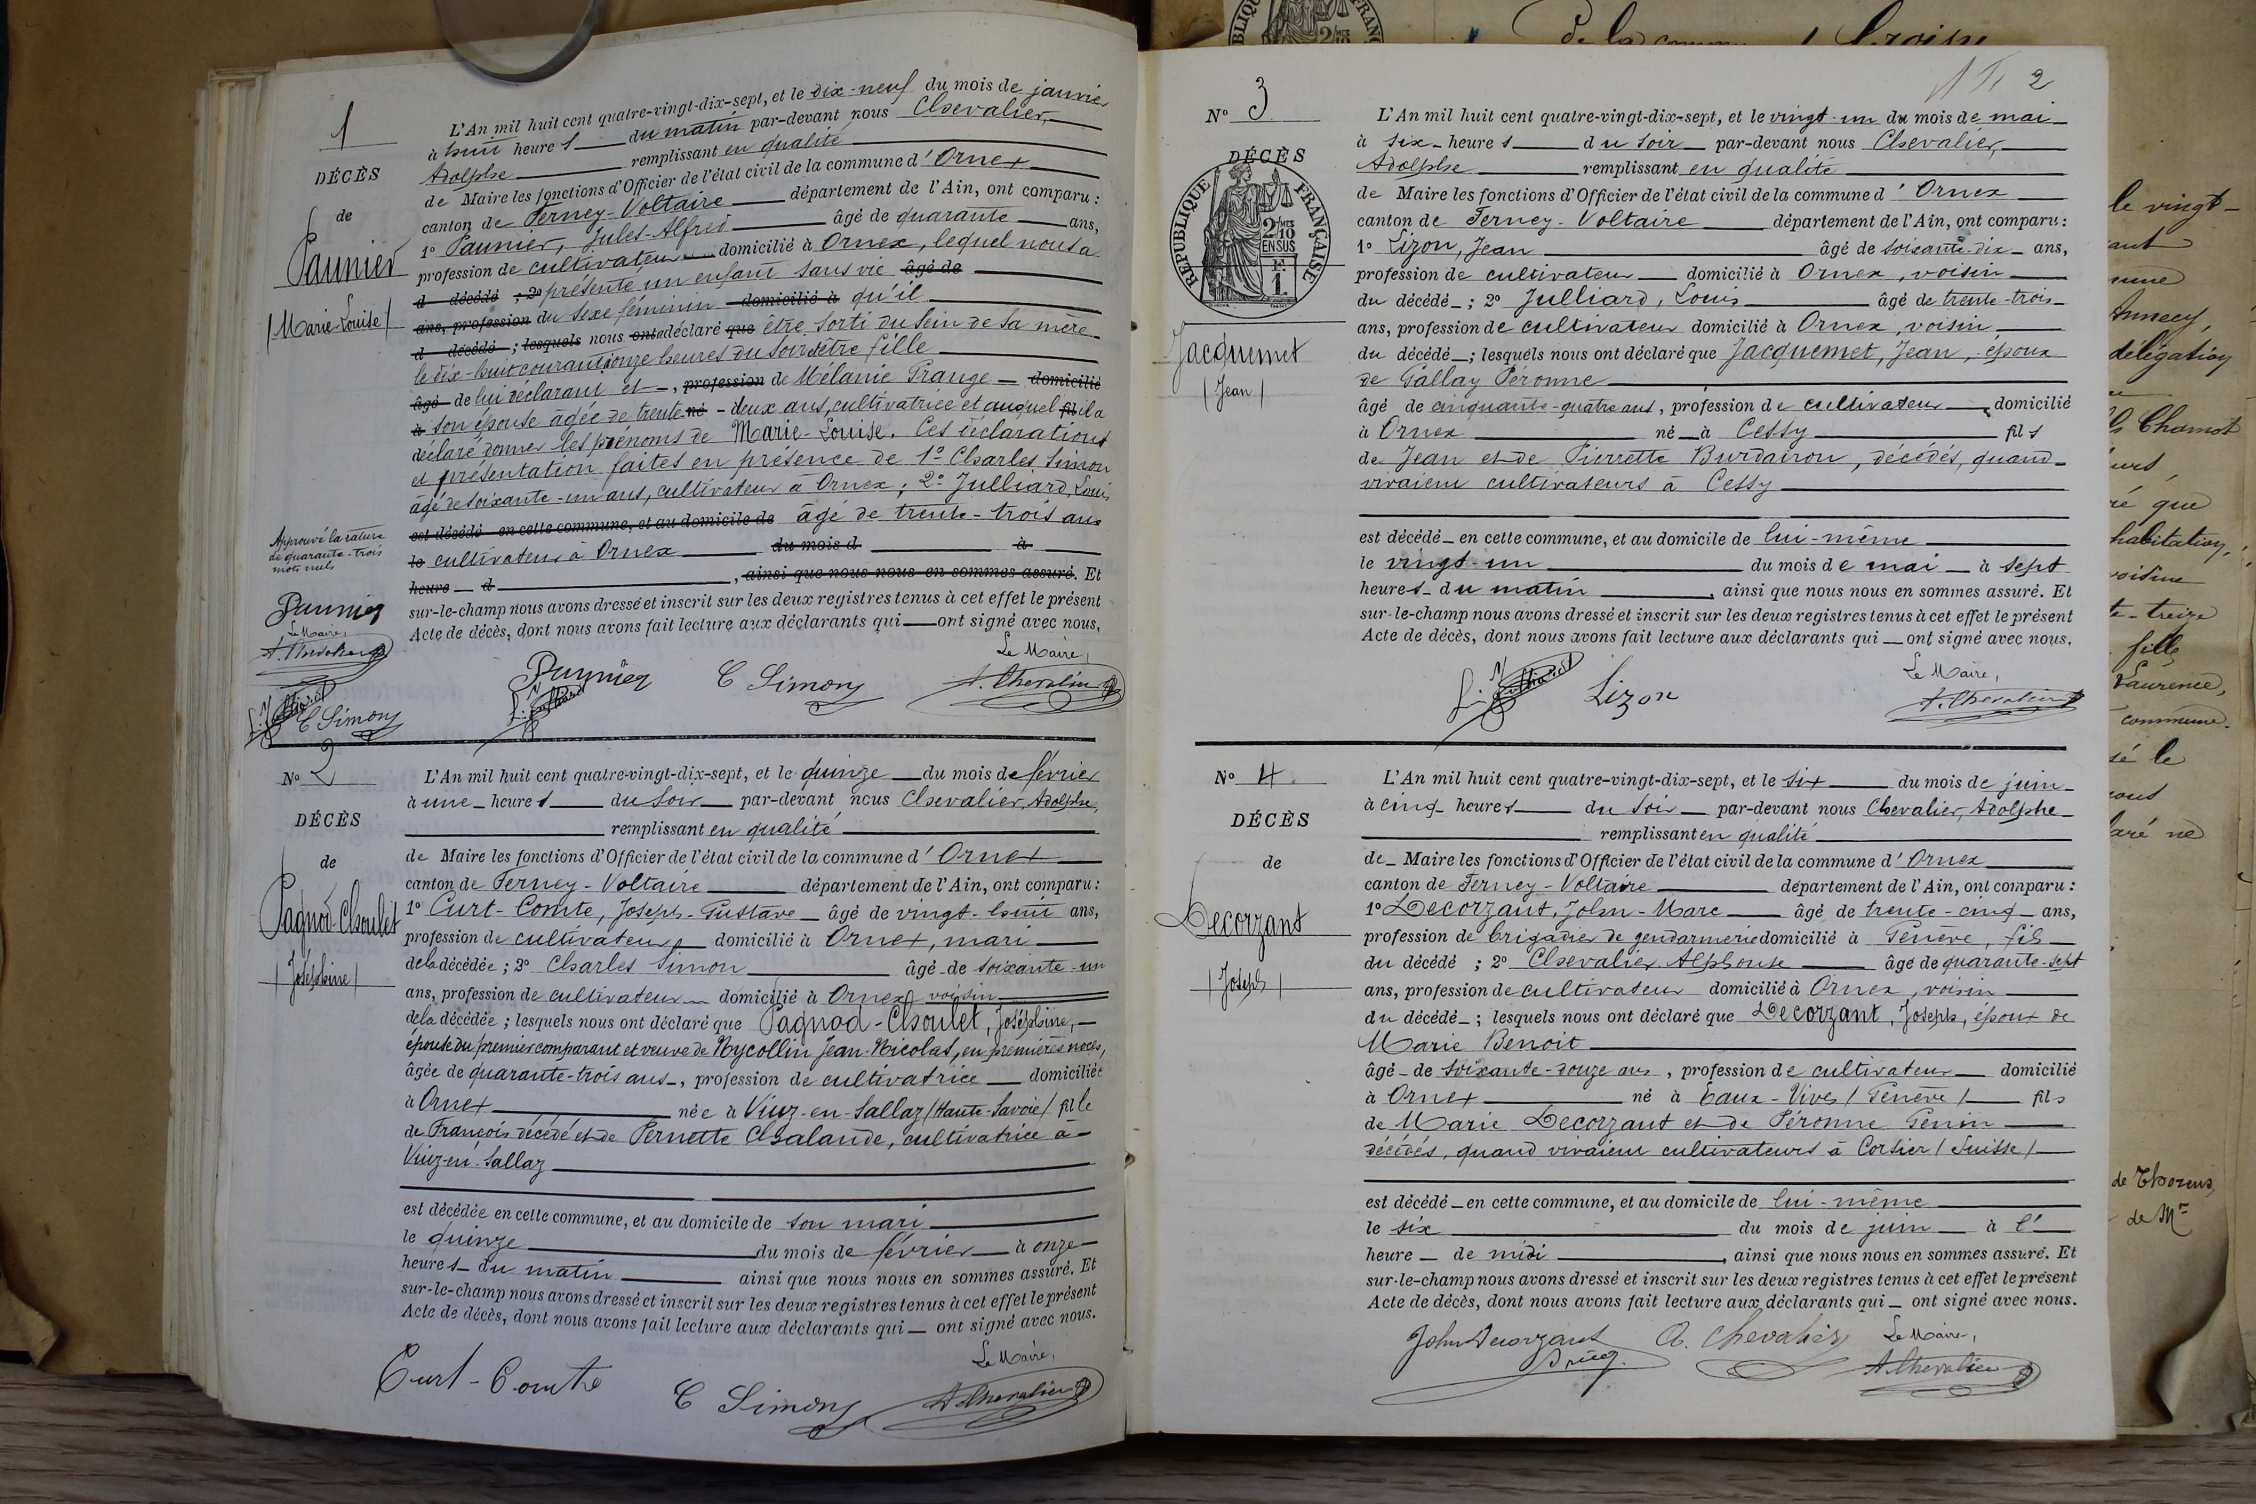 1
DÉCÈS
de
Paunier
(Marie-Louise)
L'An mil huit cent quatre-vingt-dix-sept, et le dix-neuf du mois de janvier
à huit heures du matin par-devant nous Chevalier,
Adolphe remplissant en qualité
de Maire les fonctions d'Officier de l'état civil de la commune d'Ornex
canton de Ferney-Voltaire département de l'Ain, ont comparu :
1º Paunier, Jules-Alfred âgé de quarante ans,
profession de cultivateur domicilié à Ornex, lequel nous a
d décédé ; 2º présenté un enfant sans vie âgé de
ans, profession du sexe féminin domicilié à qu'il
d décédé ; lesquels nous ont déclaré que être sorti du sein de sa mère
le dix-huit courant à onze heures du soir être fille
âgé de lui déclarant et, profession de Mélanie Prange domicilié
à son épouse âgée de trente né - deux ans, cultivatrice et auquel fil il a
déclaré donner les prénoms de Marie-Louise. Ces déclarations
et présentation faites en présence de 1º Charles Simon
âgé de soixante-un ans, cultivateur à Ornex ; 2º Julliard, Louis
est décédé en cette commune, et au domicile de âgé de trente-trois ans
le cultivateur à Ornex du mois d à
heure d , ainsi que nous nous en sommes assuré. Et
sur-le-champ nous avons dressé et inscrit sur les deux registres tenus à cet effet le présent
Acte de décès, dont nous avons fait lecture aux déclarants qui ont signé avec nous.
Approuvé la rature
de quarante-trois
mots nuls
Paunier
Le Maire,
A. Chevalier
L. Julliard
C Simon
Le Maire,
Paunier C Simon A. Chevalier
L. Julliard
Nº 2
DÉCÈS
de
Pagnod-Choulet
(Joséphine)
L'An mil huit cent quatre-vingt-dix-sept, et le quinze du mois de février
à une heures du soir par-devant nous Chevalier, Adolphe,
remplissant en qualité
de Maire les fonctions d'Officier de l'état civil de la commune d'Ornex
canton de Ferney-Voltaire département de l'Ain, ont comparu :
1º Curt-Comte, Joseph-Gustave âgé de vingt-huit ans,
profession de cultivateur domicilié à Ornex, mari
de la décédée ; 2º Charles Simon âgé de soixante-un
ans, profession de cultivateur domicilié à Ornex, voisin
de la décédée ; lesquels nous ont déclaré que Pagnod-Choulet, Joséphine,
épouse du premier comparant et veuve de Nycollin Jean-Nicolas, en premières noces,
âgée de quarante-trois ans, profession de cultivatrice domiciliée
à Ornex née à Viuz-en-Sallaz (Haute-Savoie) fille
de François décédé et de Pernette Chalande, cultivatrice à
Viuz-en-Sallaz
est décédée en cette commune, et au domicile de son mari
le quinze du mois de février à onze
heures du matin ainsi que nous nous en sommes assuré. Et
sur-le-champ nous avons dressé et inscrit sur les deux registres tenus à cet effet le présent
Acte de décès, dont nous avons fait lecture aux déclarants qui ont signé avec nous.
Le Maire,
Curt-Comte C Simon A. Chevalier
2
Nº 3
DÉCÈS
RÉPUBLIQUE FRANÇAISE
2/10 MES
EN SUS
F.
1.
Jacquemet
(Jean)
L'An mil huit cent quatre-vingt-dix-sept, et le vingt-un du mois de mai
à six heures du soir par-devant nous Chevalier,
Adolphe remplissant en qualité
de Maire les fonctions d'Officier de l'état civil de la commune d'Ornex
canton de Ferney-Voltaire département de l'Ain, ont comparu :
1º Lizon, Jean âgé de soixante-dix ans,
profession de cultivateur domicilié à Ornex, voisin
du décédé ; 2º Julliard, Louis âgé de trente-trois
ans, profession de cultivateur domicilié à Ornex, voisin
du décédé ; lesquels nous ont déclaré que Jacquemet, Jean, époux
de Gallay Péronne
âgé de cinquante-quatre ans, profession de cultivateur, domicilié
à Ornex né à Cessy fils
de Jean et de Pierrette Burdairon, décédés, quand
vivaient cultivateurs à Cessy
est décédé en cette commune, et au domicile de lui-même
le vingt-un du mois de mai à sept
heures du matin, ainsi que nous nous en sommes assuré. Et
sur-le-champ nous avons dressé et inscrit sur les deux registres tenus à cet effet le présent
Acte de décès, dont nous avons fait lecture aux déclarants qui ont signé avec nous.
Le Maire,
L. Julliard Lizon A. Chevalier
Nº 4
DÉCÈS
de
Decorzant
(Joseph)
L'An mil huit cent quatre-vingt-dix-sept, et le six du mois de juin
à cinq heures du soir par-devant nous Chevalier, Adolphe
remplissant en qualité
de Maire les fonctions d'Officier de l'état civil de la commune d'Ornex
canton de Ferney-Voltaire département de l'Ain, ont comparu :
1º Decorzant, John-Marc âgé de trente-cinq ans,
profession de brigadier de gendarmerie domicilié à Genève, fils
du décédé ; 2º Chevalier Alphonse âgé de quarante-sept
ans, profession de cultivateur domicilié à Ornex, voisin
du décédé ; lesquels nous ont déclaré que Decorzant, Joseph, époux de
Marie Benoit
âgé de soixante-douze ans, profession de cultivateur domicilié
à Ornex né à Eaux-Vives (Genève) fils
de Marie Decorzant et de Péronne Genin
décédés, quand vivaient cultivateurs à Corsier (Suisse)
est décédé en cette commune, et au domicile de lui-même
le six du mois de juin à l'
heure de midi, ainsi que nous nous en sommes assuré. Et
sur-le-champ nous avons dressé et inscrit sur les deux registres tenus à cet effet le présent
Acte de décès, dont nous avons fait lecture aux déclarants qui ont signé avec nous.
Le Maire,
John Decorzant A. Chevalier A. Chevalier
de la
le vingt-
Annecy,
délégation
Chamot
ré que
habitation,
voisine
te-treize
fille
Laurence,
commune.
sé le
nous
laré ne
de Thorens,
de Mr